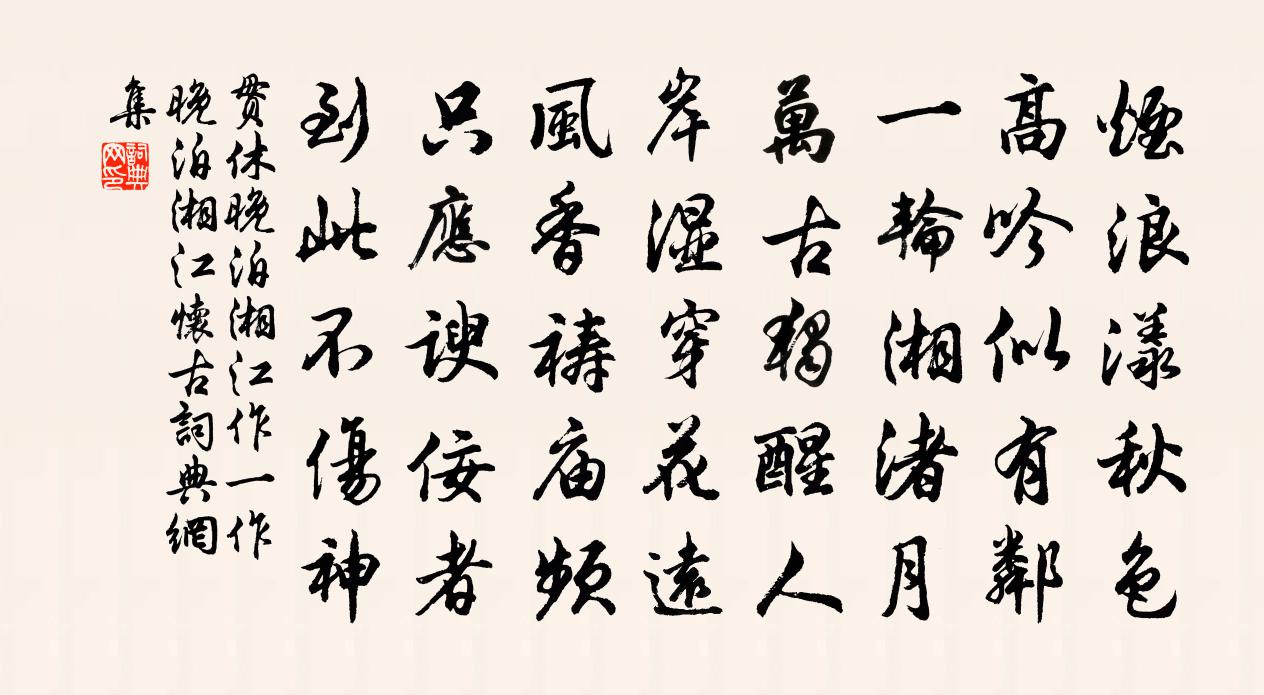 煙浪漾秋色
高吟似有鄰
一輪湘渚月
萬古獨醒人
岸濕穿花遠
風香禱庙頻
只應諛佞者
到此不傷神
貫休晚泊湘江作一作
晚泊湘江懷古詞典網
集
詞典網印